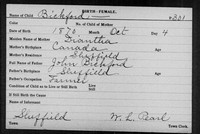 BIRTH-FEMALE.
Name of Child Bickford,
Color No. of Child of Mother
Date of Birth 1870 Month Oct Day 4
Maiden Name of Mother Diantha
Mother's Birthplace Canada Age
Mother's Residence Sheffield
Full Name of Father John Bickford
Father's Birthplace Sheffield Age
Father's Occupation Farmer
Condition of Child as to Live or Still Birth
If Still Birth the Cause
Name and Address of Informant
Sheffield W. L. Pearl